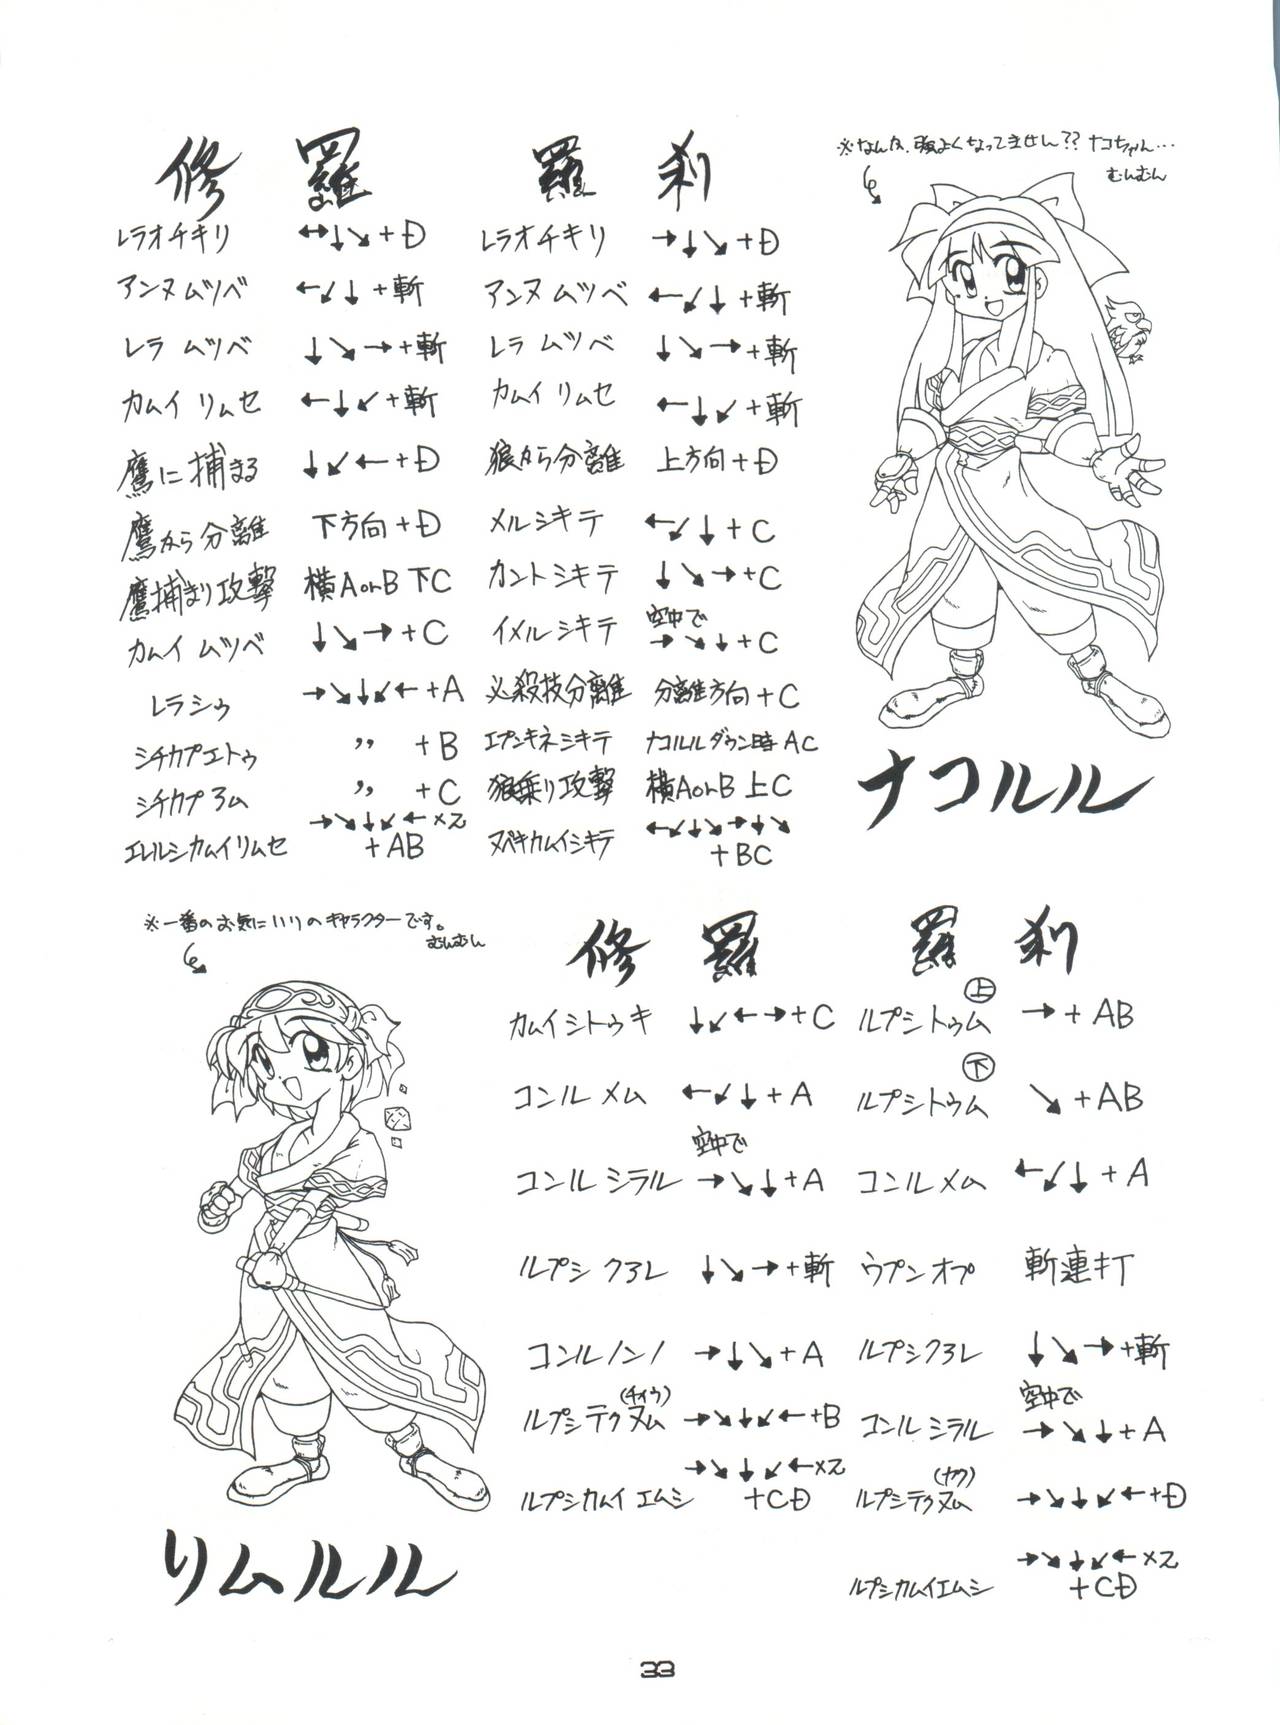 修羅
レラオチキリ ↔↓↘+D
アンヌムツベ ←↙↓+斬
レラ ムツベ ↓↘→+斬
カムイ リムセ ←↓↙+斬
鷹に捕まる ↓↙←+D
鷹から分離 下方向+D
鷹捕まり攻撃 横AorB 下C
カムイ ムツベ ↓↘→+C
レラシゥ →↘↓↙←+A
シチカプエトゥ 〃 +B
シチカプアム 〃 +C
エレルシカムイリムセ →↘↓↙←×2+AB
羅刹
レラオチキリ →↓↘+D
アンヌムツベ ←↙↓+斬
レラ ムツベ ↓↘→+斬
カムイ リムセ ←↓↙+斬
狼から分離 上方向+D
メルシキテ ←↙↓+C
カントシキテ ↓↘→+C
イメルシキテ 空中で →↘↓+C
必殺技分離 分離方向+C
エプンキネシキテ ナコルルダウン時AC
狼乗り攻撃 横AorB 上C
ヌペキカムイシキテ ←↙↓↘→↓↘+BC
※なんか、強よくなってません?? ナコちゃん…
むんむん
ナコルル
※一番のお気にいりのキャラクターです。
むんむん
リムルル
修羅
カムイシトゥキ ↓↙←→+C
コンル メム ←↙↓+A
コンル シラル 空中で →↘↓+A
ルプシ クアレ ↓↘→+斬
コンルノンノ →↓↘+A
ルプシテクヌム(チィウ) →↘↓↙←+B
ルプシカムイエムシ →↘↓↙←×2+CD
羅刹
ルプシトゥム㊤ →+AB
ルプシトゥム㊦ ↘+AB
コンルメム ←↙↓+A
ウプンオプ 斬連打
ルプシクアレ ↓↘→+斬
コンルシラル 空中で →↘↓+A
ルプシテクヌム(ナウ) →↘↓↙←+D
ルプシカムイエムシ →↘↓↙←×2+CD
33